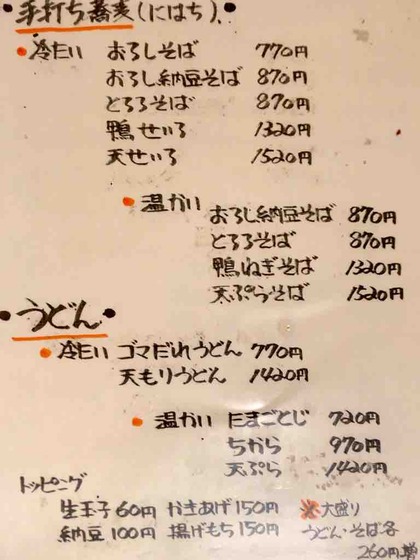 ・手打ち蕎麦(にはち)・
・冷たい おろしそば 770円
おろし納豆そば 870円
とろろそば 870円
鴨せいろ 1320円
天せいろ 1520円
・温かい おろし納豆そば 870円
とろろそば 870円
鴨ねぎそば 1320円
天ぷらそば 1520円
・うどん・
・冷たい ゴマだれうどん 770円
天もりうどん 1420円
・温かい たまごとじ 720円
ちから 970円
天ぷら 1420円
トッピング
生玉子 60円 かきあげ 150円 ※大盛り
納豆 100円 揚げもち 150円 うどん・そば各
260円増